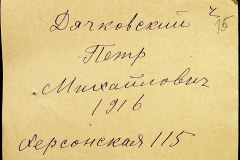 15
Дячковский
Петр
Михайлович
1916
Херсонская 115